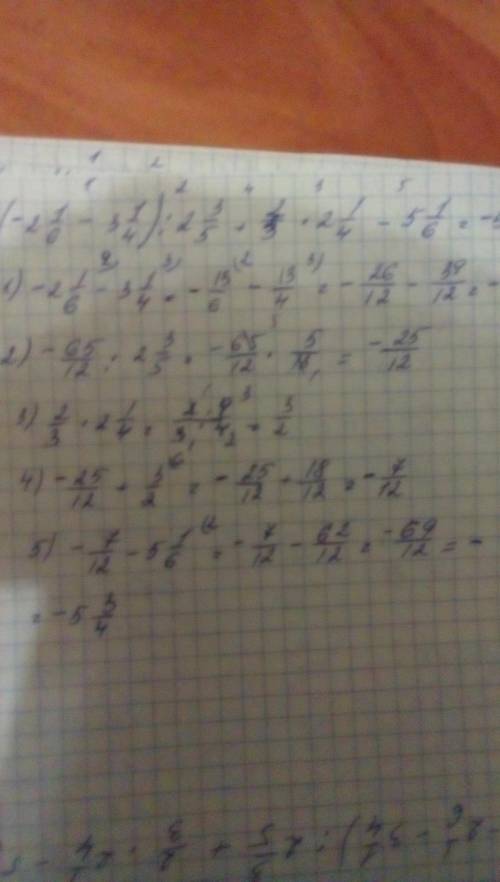 1 2
1 2 4 3 5
(-2 1/6 - 3 1/4) : 2 3/5 + 2/3 · 2 1/4 - 5 1/6 = -
1) -2 1/6 - 3 1/4 = -13/6 - 13/4 = -26/12 - 39/12 = -
2) -65/12 : 2 3/5 = -65/12 · 5/13 = -25/12
3) 2/3 · 2 1/4 = 2·9/3·4 = 3/2
4) -25/12 + 3/2 = -25/12 + 18/12 = -7/12
5) -7/12 - 5 1/6 = -7/12 - 62/12 = -69/12 = -
= -5 3/4